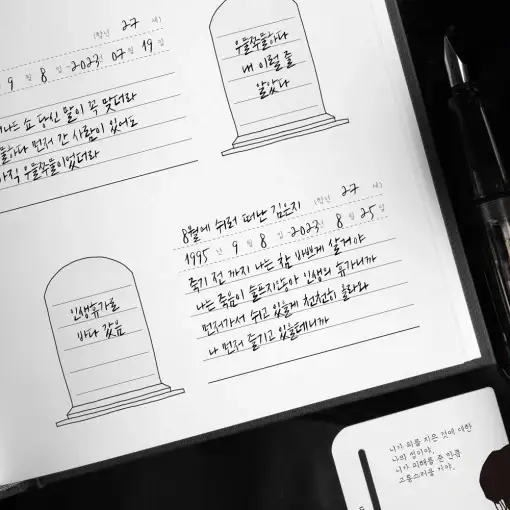 (향년 27 세)
9 월 8 일 2023년 07월 19일
나는 쇼 당신 말이 꼭 맞더라
하다 먼저 간 사람이 있어도
아직 우물쭈물이었더라
우물쭈물하다
내 이럴 줄
알았다
8월에 쉬러 떠난 김은지 (향년 27 세)
1995 년 9 월 8 일 2023년 8 월 25 일
죽기 전 까지 나는 참 바쁘게 살거야
나는 죽음이 슬프지않아 인생의 휴가니까
먼저가서 쉬고 있을게 천천히 놀다와
나 먼저 즐기고 있을테니까
인생휴가로
바다 갔음
니가 죄를 지은 것에 대한
나의 벌이야,
니가 피해를 준 만큼
고통스러울 거야.